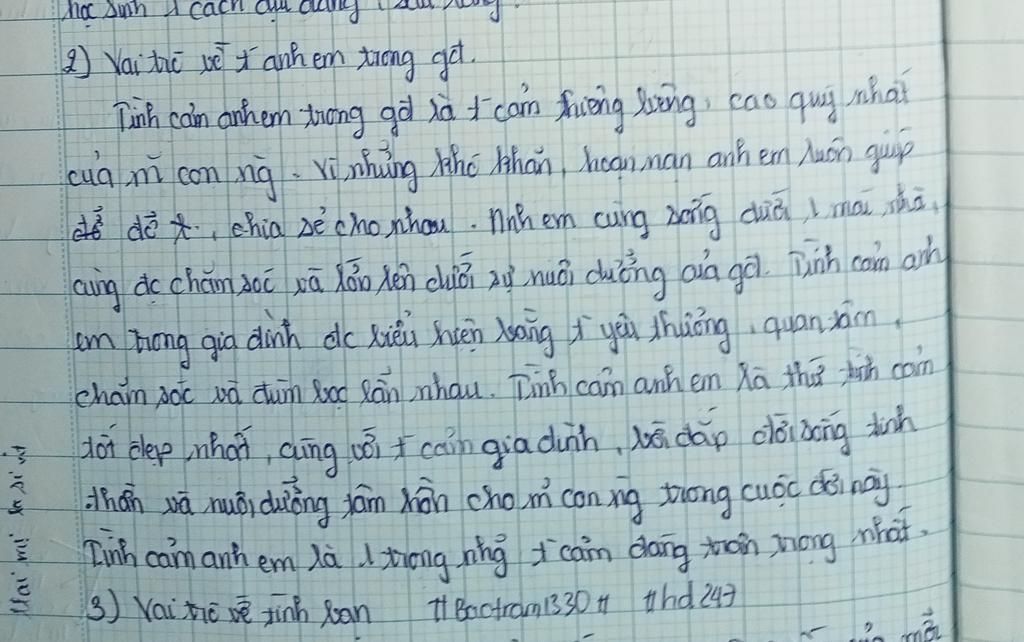 học sinh 1 cách
2) Vai trò về t anh em trong gđ.
Tình cảm anh em trong gđ là t cảm thiêng liêng, cao quý nhất
của m̃ con ng̀. Vì những khó khăn, hoạn nạn anh em luôn giúp
đỡ, chia sẻ cho nhau. Anh em cùng sống dưới 1 mái nhà,
cùng đc chăm sóc và lớn lên dưới sự nuôi dưỡng của gđ. Tình cảm anh
em trong gia đình đc biểu hiện bằng t yêu thương, quan tâm,
chăm sóc và đùm bọc lẫn nhau. Tình cảm anh em là thứ tình cảm
tốt đẹp nhất, cùng với t cảm gia đình, bồi đắp đời sống tinh
thần và nuôi dưỡng tâm hồn cho m̃ con ng̀ trong cuộc đời này.
Tình cảm anh em là 1 trong nhg̃ t cảm đáng trân trọng nhất.
3) Vai trò về tình bạn #Bactram1330# #hd247